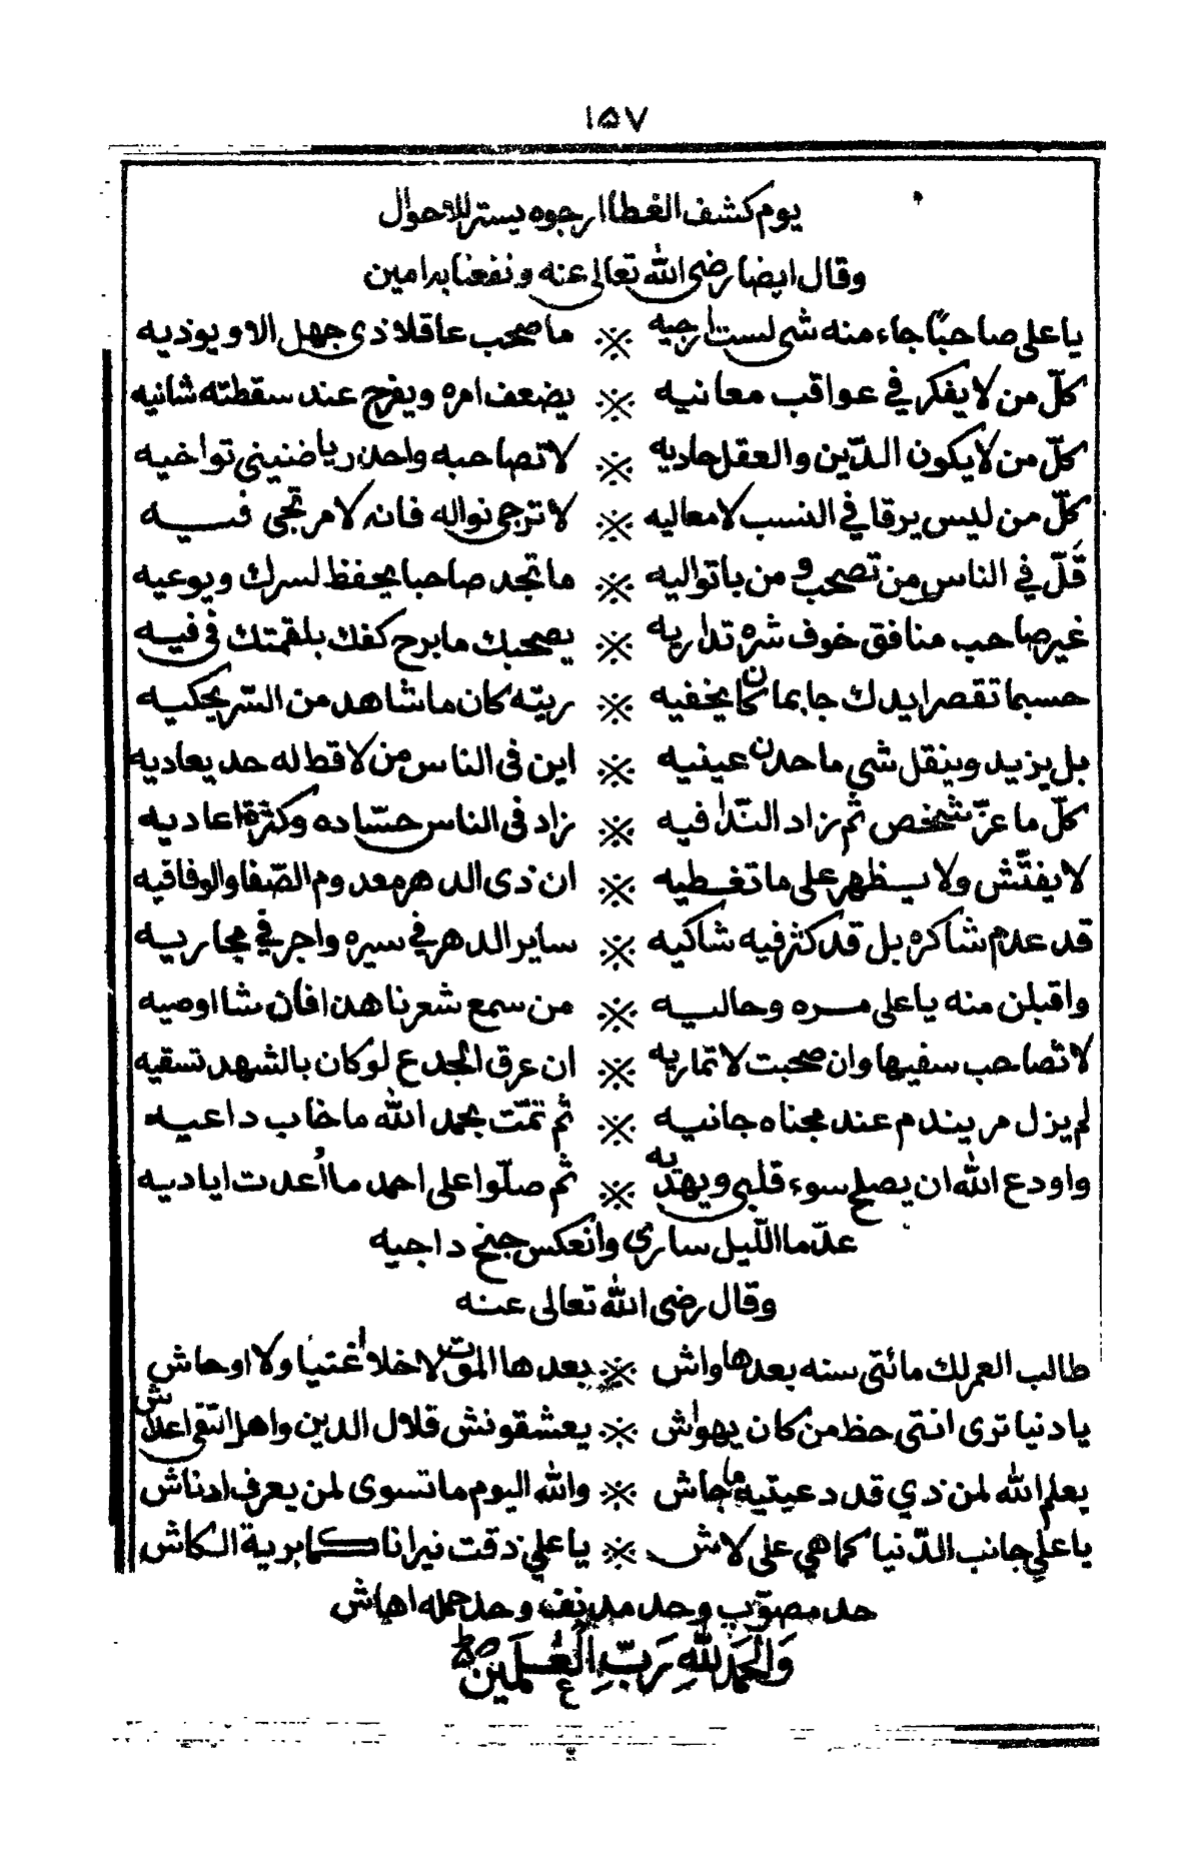 ١٥٧
يوم كشف الغطا ارجوه يستر للاحوال
وقال ايضا رضى الله تعالى عنه ونفعنا به امين
يا على صاحبًا جاء منه شى لست ارجيه ※ ما صحب عاقلا ذى جهل الا ويوذيه
كلّ من لا يفكر في عواقب معانيه ※ يضعف امره ويفرح عند سقطته شانيه
كلّ من لا يكون الدّين والعقل حاديه ※ لا تصاحبه واحذر يا ضنينى تواخيه
كلّ من ليس يرقا في النسب لا معاليه ※ لا ترجى نواله فانه لا مرتجى فيه
قَلّ في الناس من تصحب ومن با تواليه ※ ما تجد صاحبا يحفظ لسرك ويوعيه
غير صاحب منافق خوف شره تداريه ※ يصحبك ما برح كفك بلقمتك فى فيه
حسبما تقصر ايدك جا بما كان يخفيه ※ ريته كان ما شاهد من السّر يحكيه
بل يزيد وينقل شي ما حد عينيه ※ اين فى الناس من لا قط له حد يعاديه
كلّ ما عزّ شخص ثم زاد النّدا فيه ※ زاد فى الناس حسّاده وكثرة اعاديه
لا يفتّش ولا يستظهر على ما تغطيه ※ ان ذى الدهر معدوم الصّفا والوفا فيه
قد عدم شاكره بل قد كثر فيه شاكيه ※ ساير الدهر في سيره واجر في مجاريه
واقبلن منه يا على مره وحاليه ※ من سمع شعرنا هذا فان شا اوصيه
لا تصاحب سفيها وان صحبت لا تماريه ※ ان عرق الجدع لو كان بالشهد تسقيه
لم يزل مر يندم عند مجناه جانيه ※ ثم تمّت بحمد الله ما خاب داعيه
وادع الله ان يصلح سوء قلبى ويهديه ※ ثم صلّوا على احمد ما اُعدت اياديه
عدّ ما اللّيل سارى وانعكس جنح داجيه
وقال رضى الله تعالى عنه
طالب العمر لك مائتى سنه بعدها واش ※ بعدها الموت لا خلا اغنيا ولا اوحاش
يا دنيا ترى انتى حظ من كان يهواش ※ يعشقونش قلال الدين واهل التقى اعداش
يعلم الله لمن ذي قد دعيتيه ما جاش ※ والله اليوم ما تسوى لمن يعرف ادناش
يا علي جانب الدّنيا كما هي على لاش ※ يا علي ذقت نيرانا كما برية الكاش
حد مصوّب وحد مدنف وحد حمله اهاش
وَالْحَمْدُ للهِ رَبِّ الْعٰلَمِيْنَ